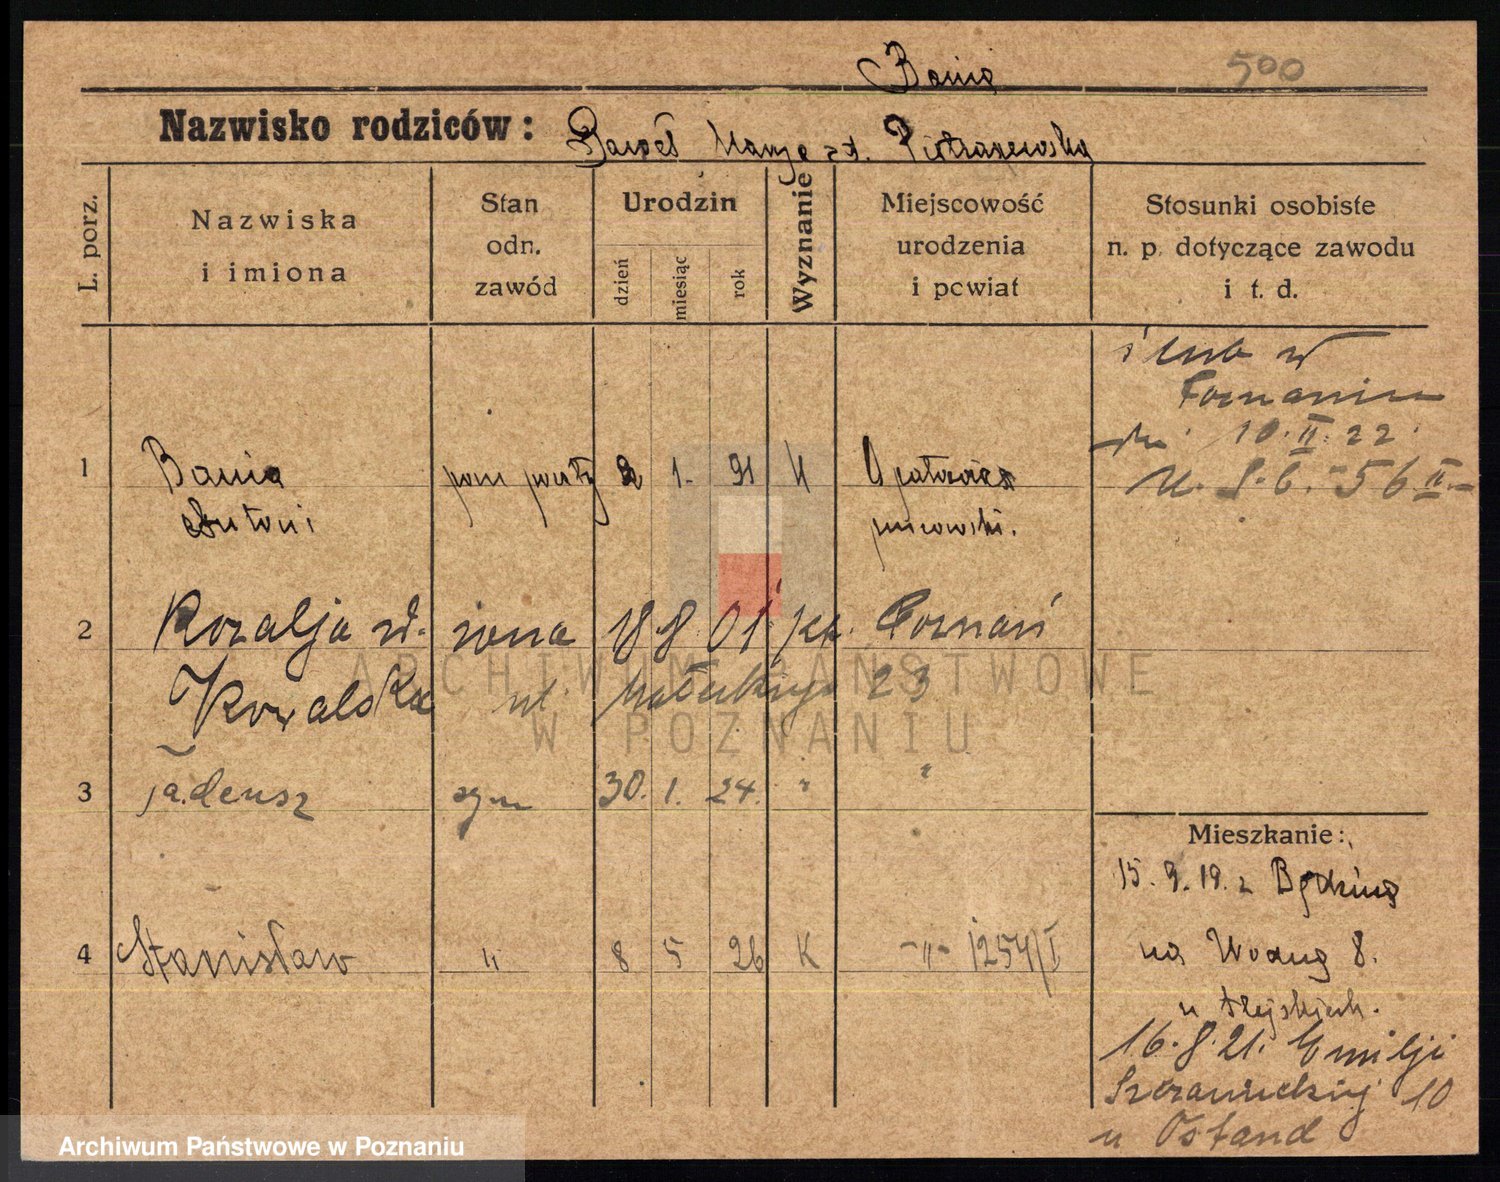 Bania 500
Nazwisko rodziców: Paweł Marja zd. Pietraszewska
L. porz.
Nazwiska
i imiona
Stan
odn.
zawód
Urodzin
dzień
miesiąc
rok
Wyznanie
Miejscowość
urodzenia
i powiat
Stosunki osobiste
n. p. dotyczące zawodu
i t. d.
ślub w
Poznaniu
dn. 10.II.22.
U. S. C. 56 II
1 Bania 2 1. 91 K
Antoni
2 Rozalja zd. żona 18 8 01 kt. Poznań
Kowalska ul. Małeckiego 23
3 Tadeusz syn 30. 1. 24. " "
4 Stanisław " 8 5 26 K -"- 1254/I
Mieszkanie:
15. 9. 19. z Będzina
na Wodną 8.
u
16. 8. 21. Emilji
Sczanieckiej 10
u Ostand
ARCHIWUM PAŃSTWOWE
W POZNANIU
Archiwum Państwowe w Poznaniu